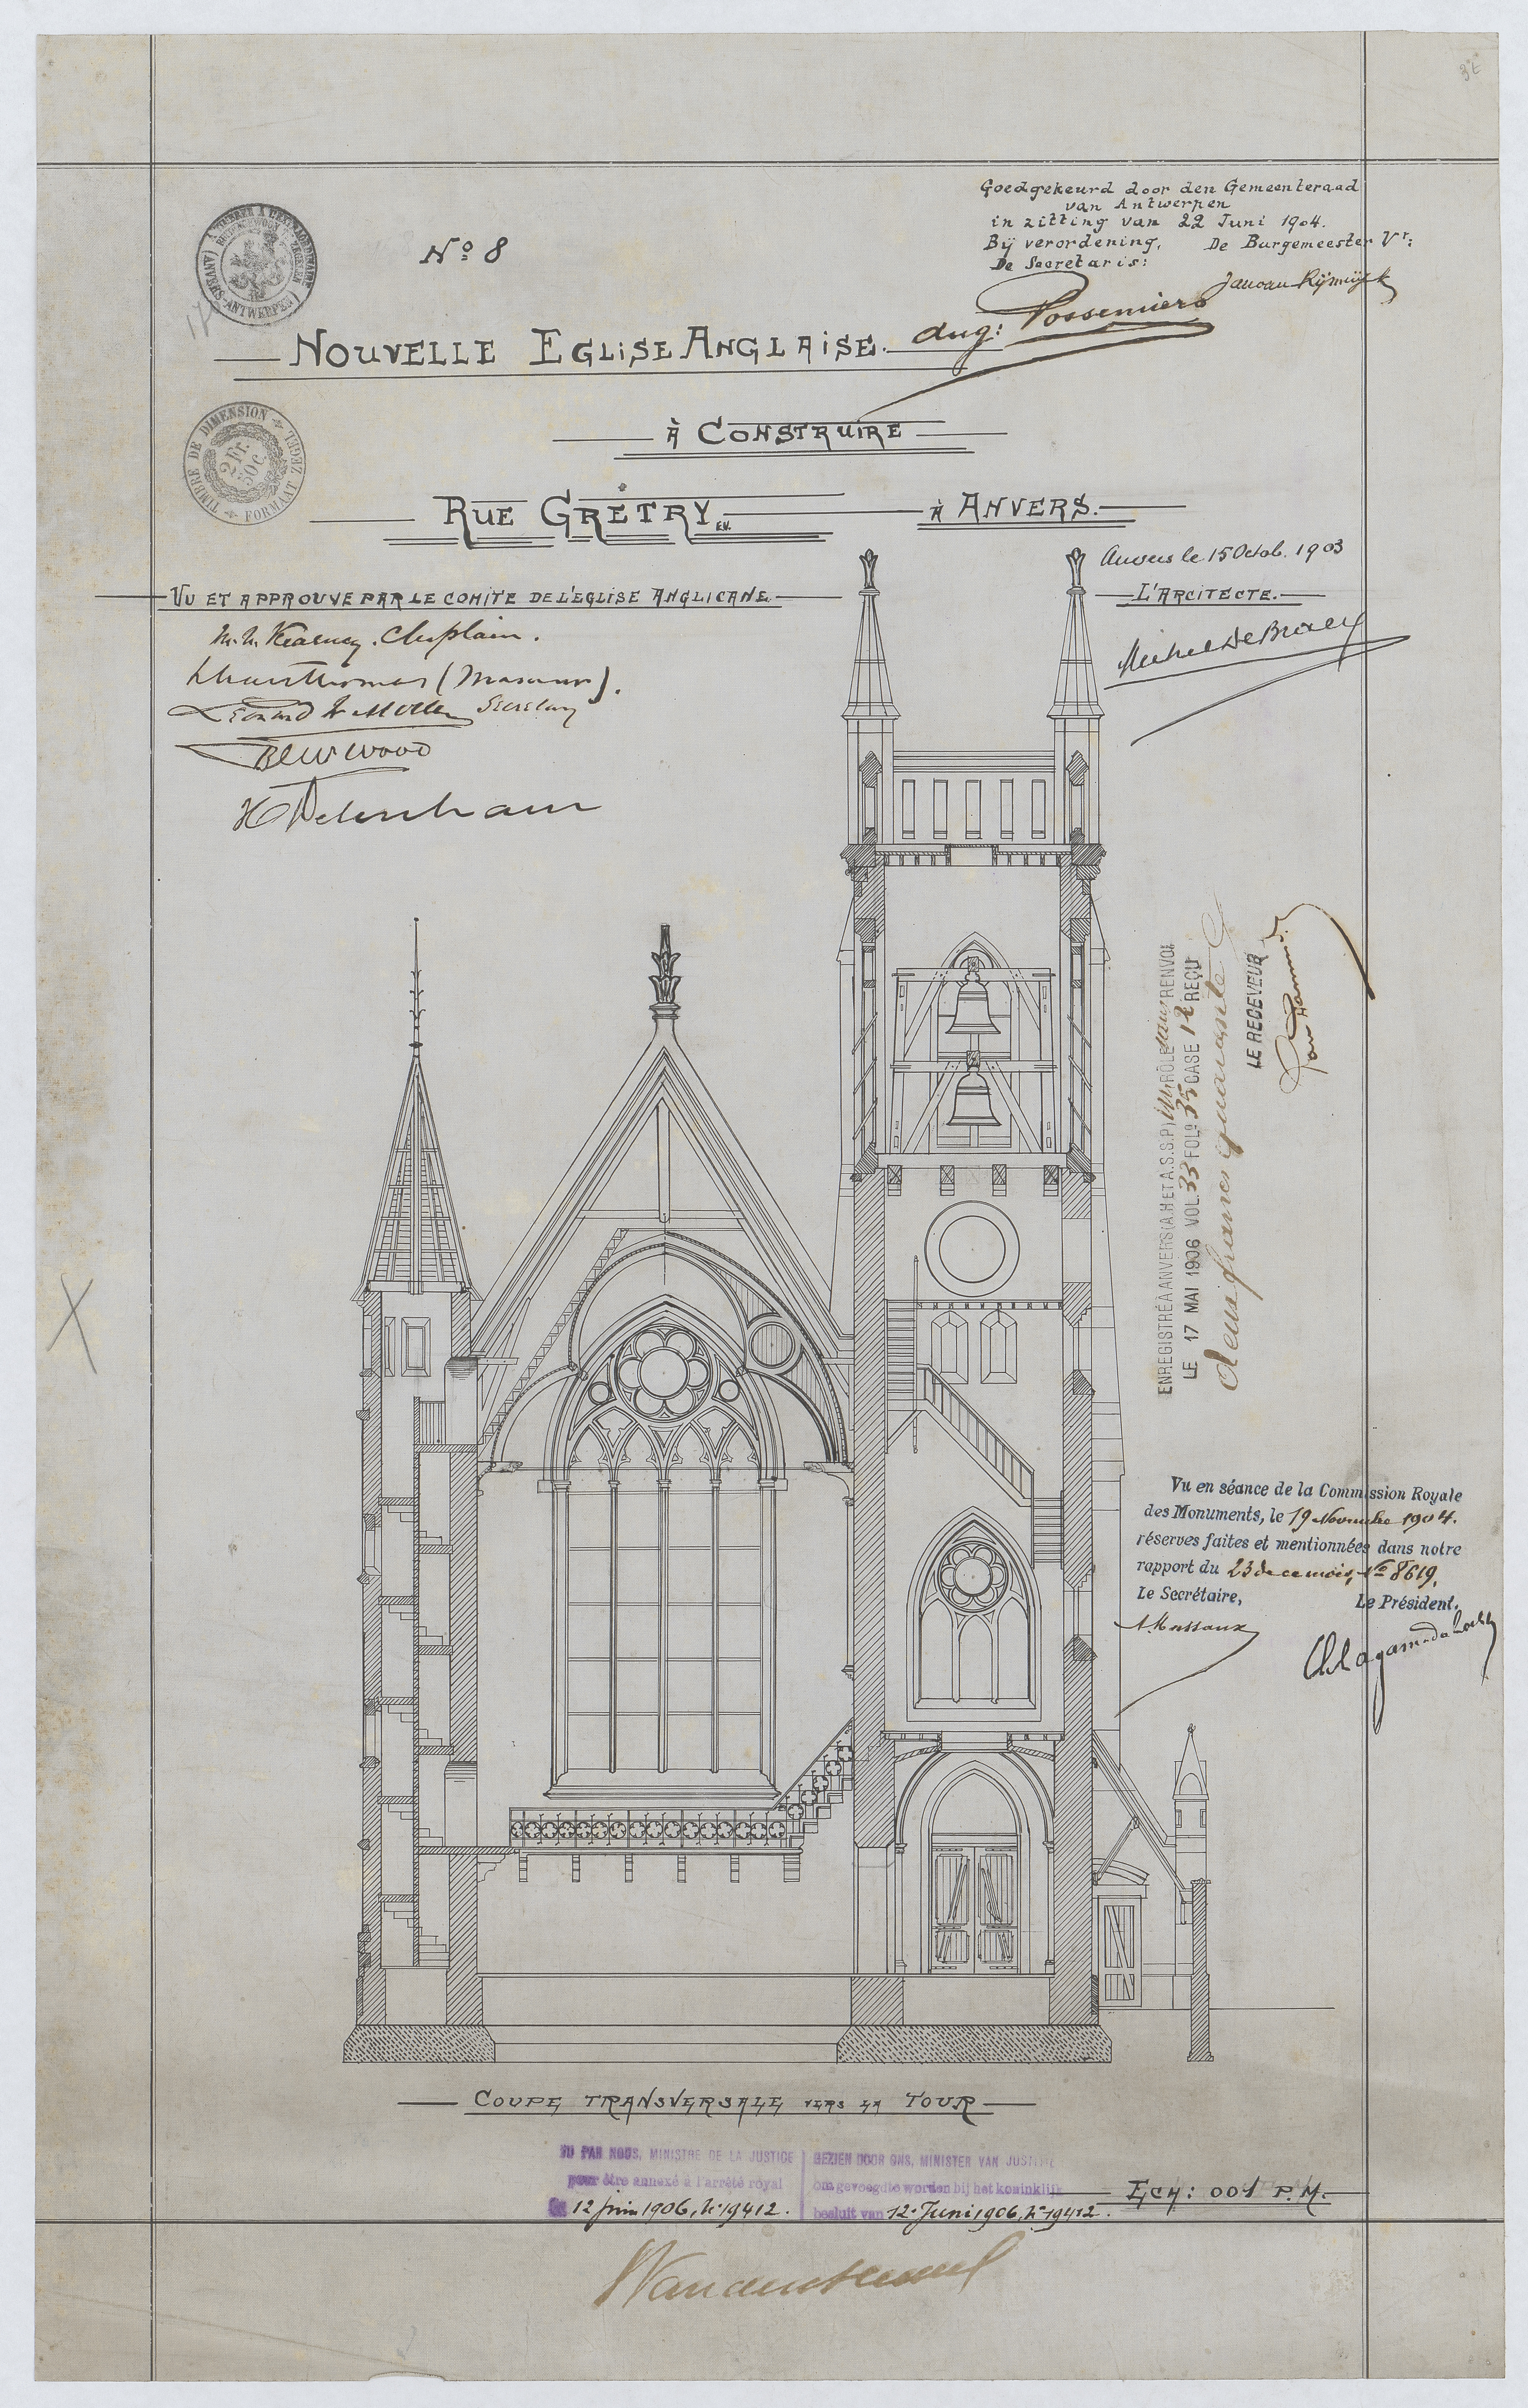 Nº 8
Goedgekeurd door den Gemeenteraad
van Antwerpen
in zitting van 22 Juni 1904.
Bij verordening, De Burgemeester Vr:
De Secretaris:
Aug: Possemiers
NOUVELLE EGLISE ANGLAISE.
À CONSTRUIRE
TIMBRE DE DIMENSION
FORMAAT ZEGEL
2 Fr. 50c.
RUE GRÉTRY E.V. À ANVERS.
Anvers le 15 Octob. 1903
L'ARCITECTE.
VU ET APPROUVE PAR LE COMITE DE L'EGLISE ANGLICANE
Chaplain.
Secretary
Wood
ENREGISTRÉ À ANVERS (A.H ET A.S.S.P) RÔLE RENVOI
LE 17 MAI 1906 VOL. 33 FOLº 35 CASE 12 REÇU
deux francs quarante c
LE RECEVEUR
Vu en séance de la Commission Royale
des Monuments, le 19 Novembre 1904.
réserves faites et mentionnées dans notre
rapport du 23 de ce mois, Nº 8619.
Le Secrétaire, Le Président.
A. Massaux
COUPE TRANSVERSALE VERS LA TOUR
VU PAR NOUS, MINISTRE DE LA JUSTICE
pour être annexé à l'arrêté royal
du 12 juin 1906, Nº 19412.
GEZIEN DOOR ONS, MINISTER VAN JUSTITIE
om gevoegd te worden bij het koninklijk
besluit van 12 Juni 1906, Nº 19412.
ECH: 001 P. M.